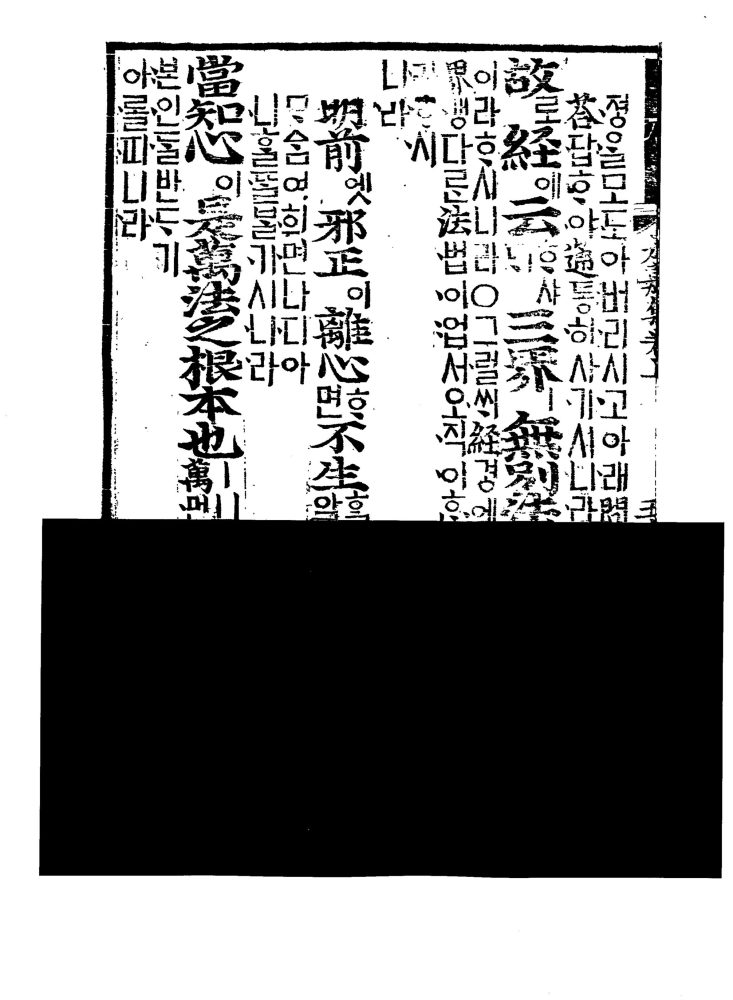 졍을모도아버리시고아래問
答답ᄒᆞ야通통히사기시니라
故로 経에 云ᄒᆞ샤 三界ㅣ 無別法
이라ᄒᆞ시니라○그럴ᄊᆡ経경에
界앵다ᄅᆞᆫ法법이업서오직이ᄒᆞᆫ
ᄒᆞ시
니라
明前엣 邪正이 離心ᄒᆞ면 不生ᄒᆞ
ᄆᆞᅀᆞᆷ여희면나디아
니홀ᄯᆞᄅᆞᆯᄇᆞᆯ기시니라
當知心이 是萬法之根本也ㅣ니
萬
본인ᄃᆞᆯ반ᄃᆞ기
아롤띠니라